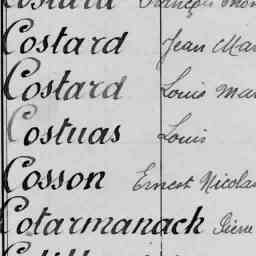 Costard François
Costard Jean Mar
Costard Louis Mar
Costuas Louis
Cosson Ernest Nicolas
Cotarmanack Pierre